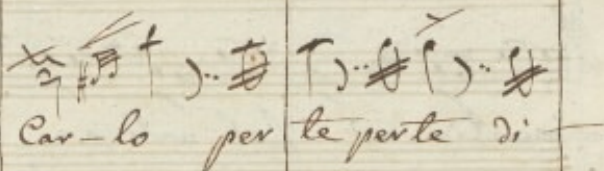 Car-lo per te per te di